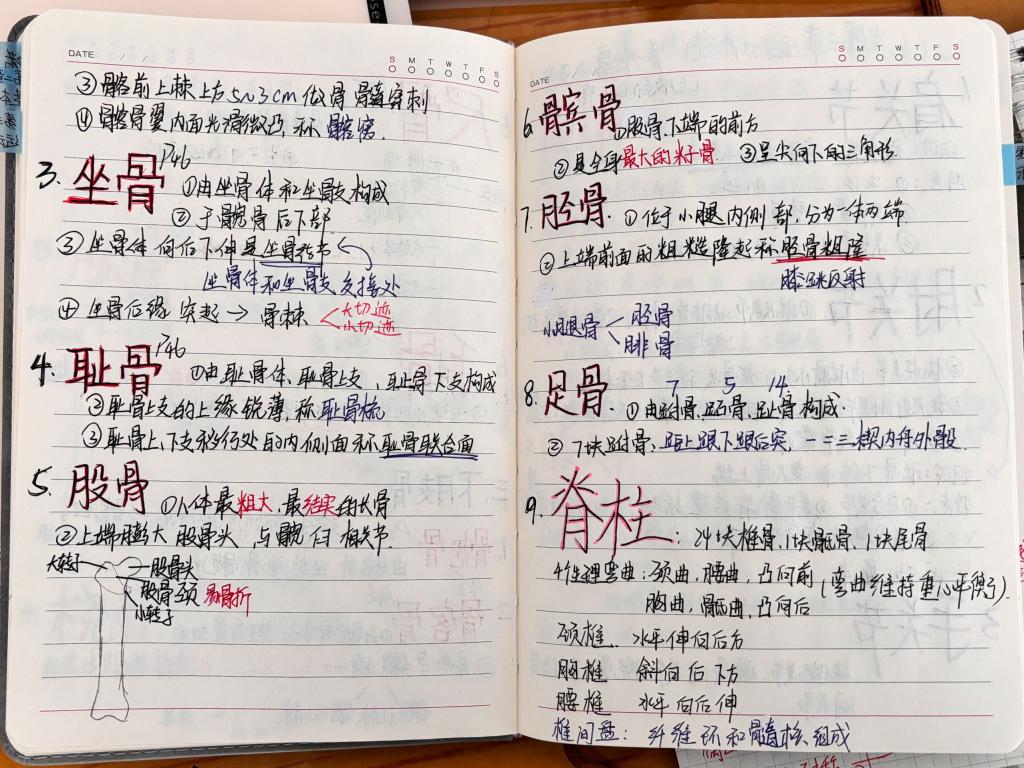 DATE
S M T W T F S
③髂前上棘上方5~3cm 做骨髓穿刺
④髂骨翼内面光滑微凸,称髂窝.
3. 坐骨 P46 ①由坐骨体和坐骨支构成
②于髋骨后下部
③坐骨体向后下伸是坐骨结节
坐骨体和坐骨支交接处
④坐骨后缘突起→骨棘
大切迹
小切迹
4. 耻骨 P46 ①由耻骨体、耻骨上支,耻骨下支构成
②耻骨上支的上缘锐薄,称耻骨梳
③耻骨上、下支移行处的内侧面称耻骨联合面
5. 股骨 ①人体最粗大,最结实的长骨
②上端膨大 股骨头,与髋臼相关节
大转子
股骨头
股骨颈 易骨折
小转子
DATE
S M T W T F S
6. 髌骨 ①股骨下端的前方
②是全身最大的籽骨 ③呈尖向下的三角形.
7. 胫骨. ①位于小腿内侧部,分为一体两端.
②上端前面的粗糙隆起称胫骨粗隆
膝跳反射
小腿骨
胫骨
腓骨
8. 足骨. 7 5 14
①由跗骨,跖骨,趾骨构成.
②7块跗骨,距上跟下跟后突,一二三楔内舟外骰
9. 脊柱:24块椎骨、1块骶骨、1块尾骨
4个生理弯曲:颈曲,腰曲,凸向前
(弯曲维持重心平衡).
胸曲,骶曲,凸向后
颈椎 水平伸向后方
胸椎 斜向后下方
腰椎 水平向后伸
椎间盘:纤维环和髓核组成